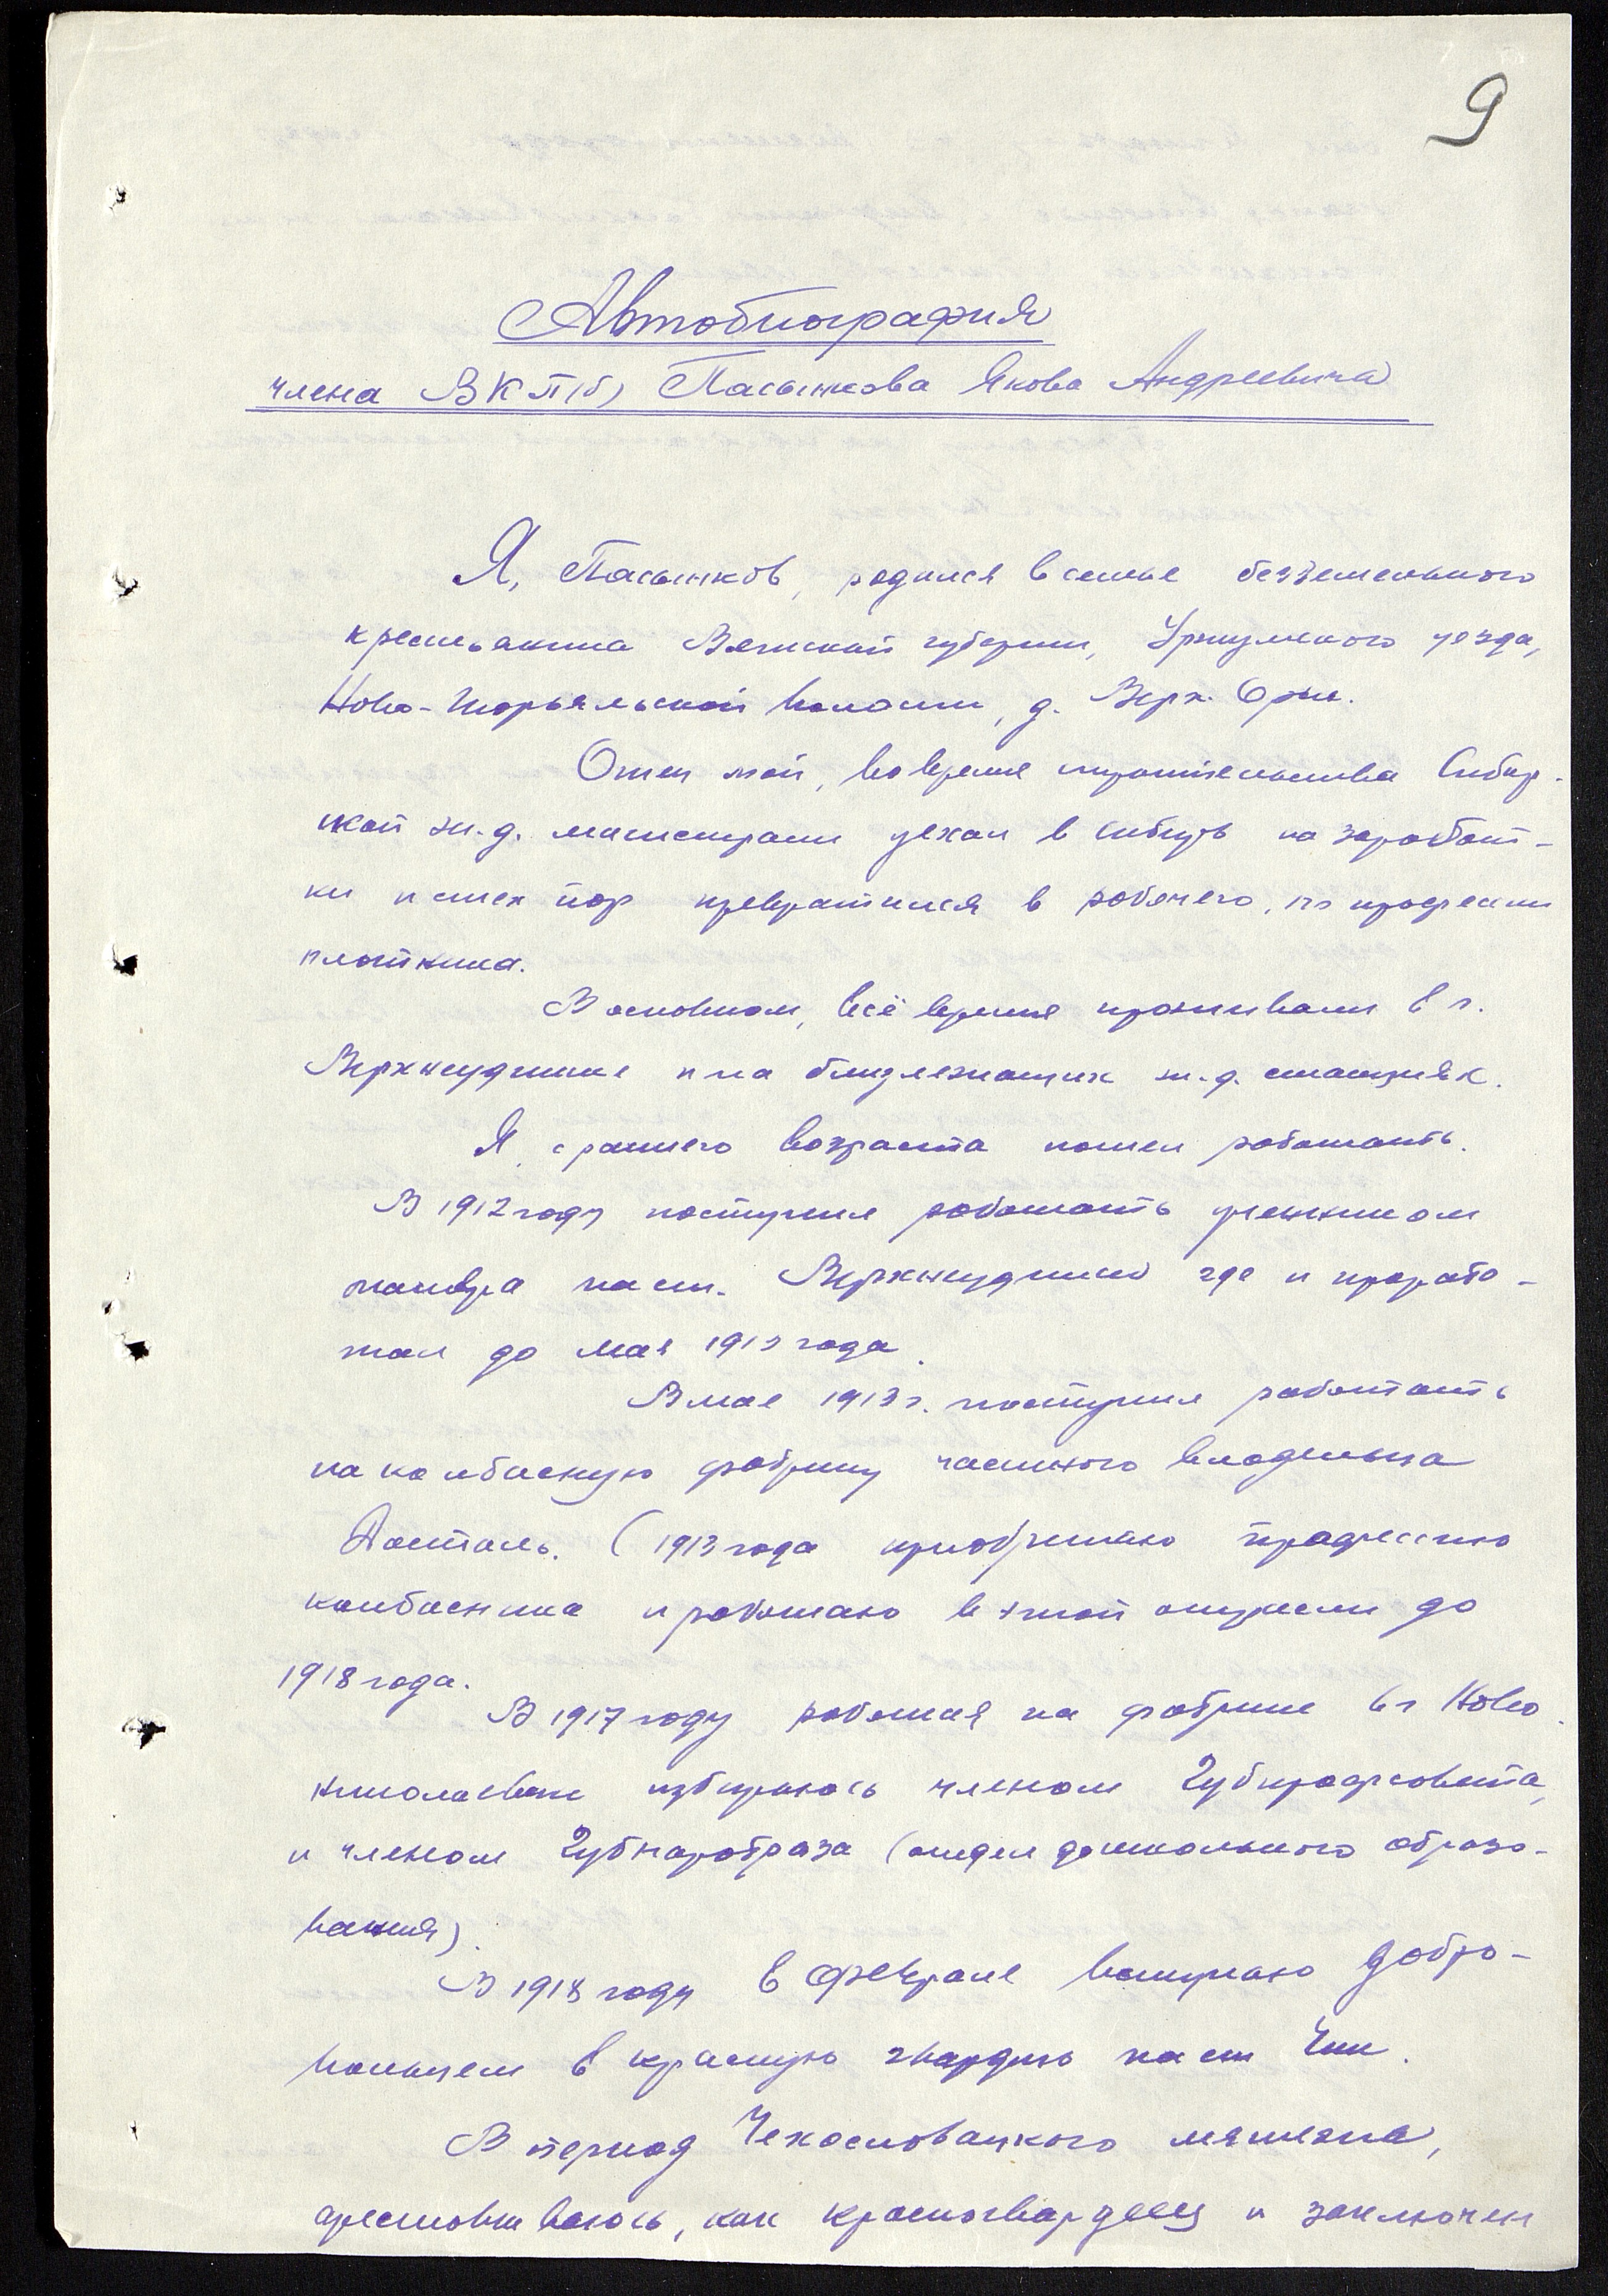 9
Автобиография
члена ВКП(б) Пасынкова Якова Андреевича
Я, Пасынков, родился в семье безземельного
крестьянина Вятской губернии, Уржумского уезда,
Ново-Торьяльской волости, д. Верх.
Отец мой, во время строительства Сибир-
ской ж.д. магистрали уехал в Сибирь на заработ-
ки и с тех пор превратился в рабочего, по профессии
плотника.
В основном, всё время проживали в г.
Верхнеудинске и на близлежащих ж.д. станциях.
Я, с раннего возраста пошел работать.
В 1912 году поступил работать учеником
на ст. Верхнеудинск где и прорабо-
тал до мая 1913 года.
В мае 1913 г. поступил работать
на колбасную фабрику частного владельца
(1913 года приобретаю профессию
колбасника и работаю в этой отрасли до
1918 года.
В 1917 году работая на фабрике в г Ново
николаевске избираюсь членом Губпрофсовета,
и членом Губнаробраза (отдел дошкольного образо-
вания).
В 1918 году в феврале вступаю добро-
вольцем в красную гвардию на ст Чик.
В период Чехословацкого мятежа,
арестовываюсь, как красногвардеец и заключен